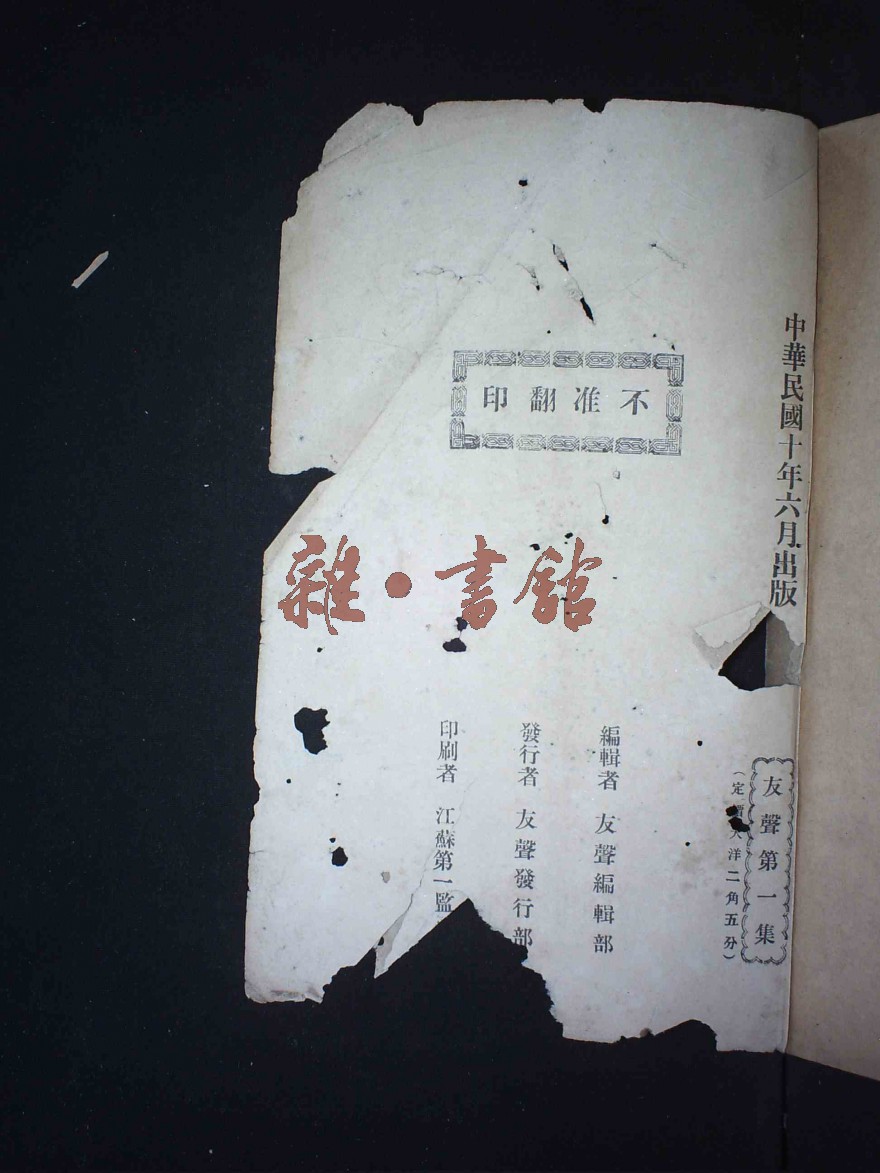 中華民國十年六月出版
友聲第一集
（定價大洋二角五分）
不准翻印
編輯者 友聲編輯部
發行者 友聲發行部
印刷者 江蘇第一監
雜•書館